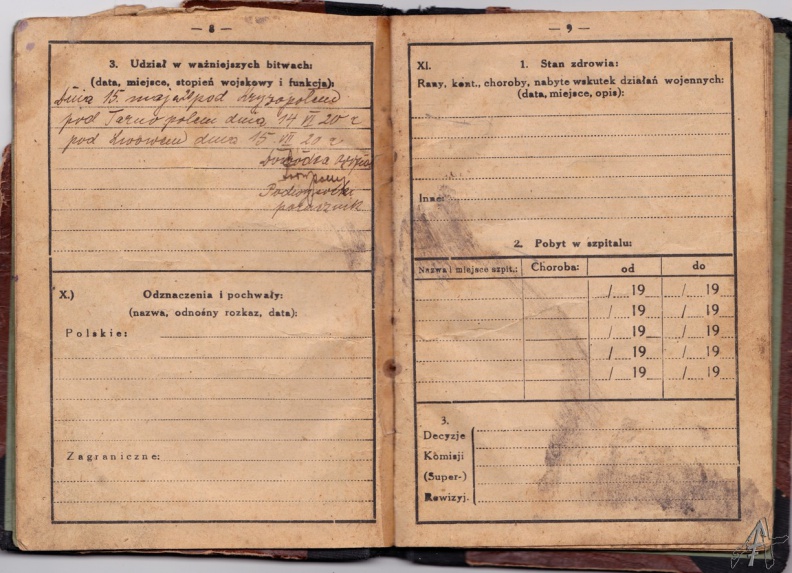 — 8 —
3. Udział w ważniejszych bitwach:
(data, miejsce, stopień wojskowy i funkcja):
Dnia 15 maja pod
pod Tarnopolem dnia 14 VI 20 r
pod Lwowem dnia 15 VII 20 r
Dowódca
porucznik
X.) Odznaczenia i pochwały:
(nazwa, odnośny rozkaz, data):
Polskie:
Zagraniczne:
— 9 —
XI. 1. Stan zdrowia:
Rany, kont., choroby, nabyte wskutek działań wojennych:
(data, miejsce, opis):
Inne:
2. Pobyt w szpitalu:
Nazwa i miejsce szpit.: Choroba: od do
/ 19 / 19
/ 19 / 19
/ 19 / 19
/ 19 / 19
/ 19 / 19
3.
Decyzje
Komisji
(Super-)
Rewizyj.